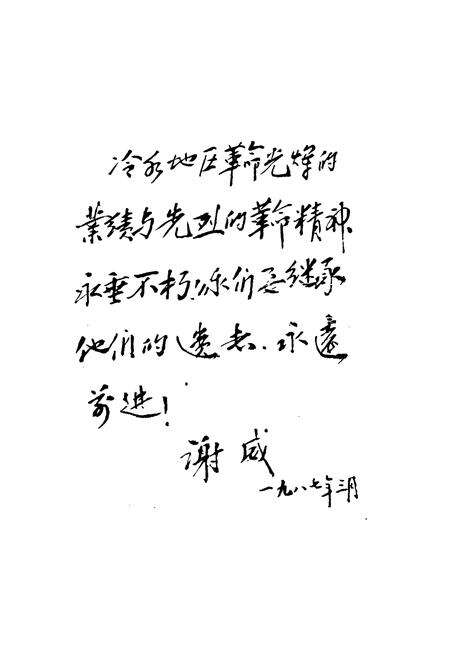 冷水地区革命光辉的
業績与先烈的革命精神
永垂不朽!你们要继承
他们的遗志.永遠
前进!
谢威
一九八七年三月